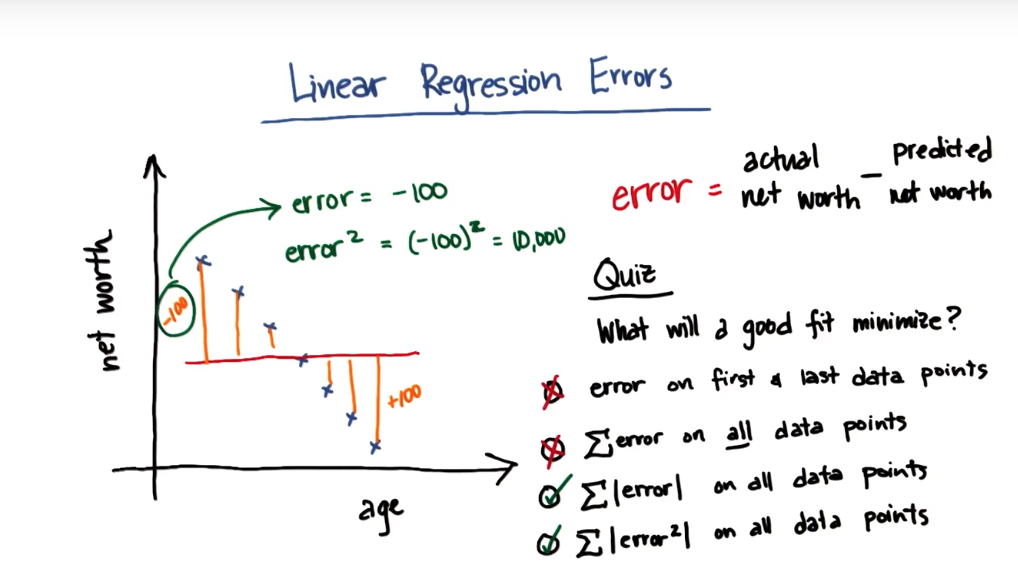 Linear Regression Errors
error = -100
error² = (-100)² = 10,000
-100
+100
net worth
age
error = actual net worth - predicted net worth
Quiz
What will a good fit minimize?
error on first & last data points
∑error on all data points
∑|error| on all data points
∑|error²| on all data points